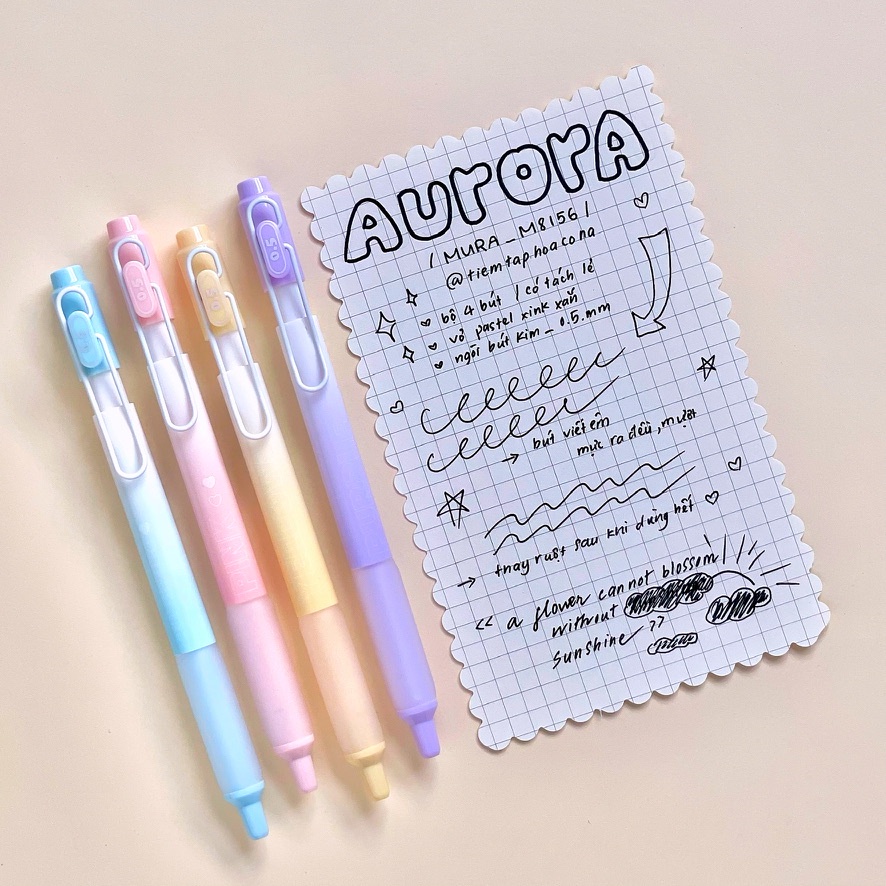 0.5
0.5
AURORA
/ MURA _ M8156 /
@tiemtaphoacona
bộ 4 bút / có tách lẻ
vỏ pastel xink xắn
ngòi bút kim _ 0.5 mm
→ bút viết êm
mực ra đều, mượt
→ thay ruột sau khi dùng hết
<< a flower cannot blossom
without
sunshine >>